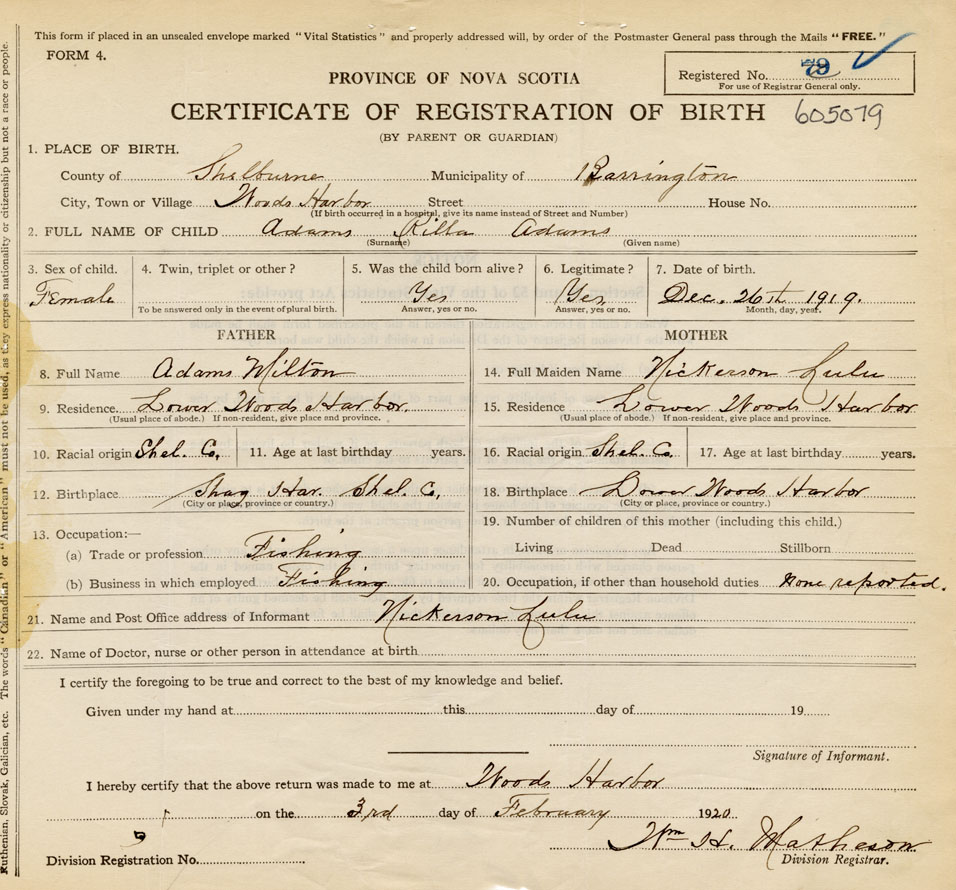 This form if placed in an unsealed envelope marked "Vital Statistics" and properly addressed will, by order of the Postmaster General pass through the Mails "FREE."
FORM 4.
Registered No. 79
For use of Registrar General only.
PROVINCE OF NOVA SCOTIA
CERTIFICATE OF REGISTRATION OF BIRTH 605079
(BY PARENT OR GUARDIAN)
1. PLACE OF BIRTH.
County of Shelburne Municipality of Barrington
City, Town or Village Woods Harbor Street House No.
(If birth occurred in a hospital, give its name instead of Street and Number)
2. FULL NAME OF CHILD Adams Rilla Adams
(Surname) (Given name)
3. Sex of child. 4. Twin, triplet or other? 5. Was the child born alive? 6. Legitimate? 7. Date of birth.
Female Yes Yes Dec. 26th 1919.
To be answered only in the event of plural birth. Answer, yes or no. Answer, yes or no. Month, day, year.
FATHER MOTHER
8. Full Name Adams Milton 14. Full Maiden Name Nickerson Lulu
9. Residence Lower Woods Harbor. 15. Residence Lower Woods Harbor
(Usual place of abode.) If non-resident, give place and province. (Usual place of abode.) If non-resident, give place and province.
10. Racial origin Shel. Co. 11. Age at last birthday years. 16. Racial origin Shel. Co. 17. Age at last birthday years.
12. Birthplace Shag Har. Shel. C, 18. Birthplace Lower Woods Harbor
(City or place, province or country.) (City or place, province or country.)
13. Occupation:— 19. Number of children of this mother (including this child.)
(a) Trade or profession Fishing Living Dead Stillborn
(b) Business in which employed Fishing 20. Occupation, if other than household duties none reported.
21. Name and Post Office address of Informant Nickerson Lulu
22. Name of Doctor, nurse or other person in attendance at birth
I certify the foregoing to be true and correct to the best of my knowledge and belief.
Given under my hand at this day of 19
Signature of Informant.
I hereby certify that the above return was made to me at Woods Harbor
on the 3rd day of February 1920
Wm H. Matheson
Division Registration No. Division Registrar.
Ruthenian, Slovak, Galician, etc. The words "Canadian" or "American" must not be used, as they express nationality or citizenship but not a race or people.